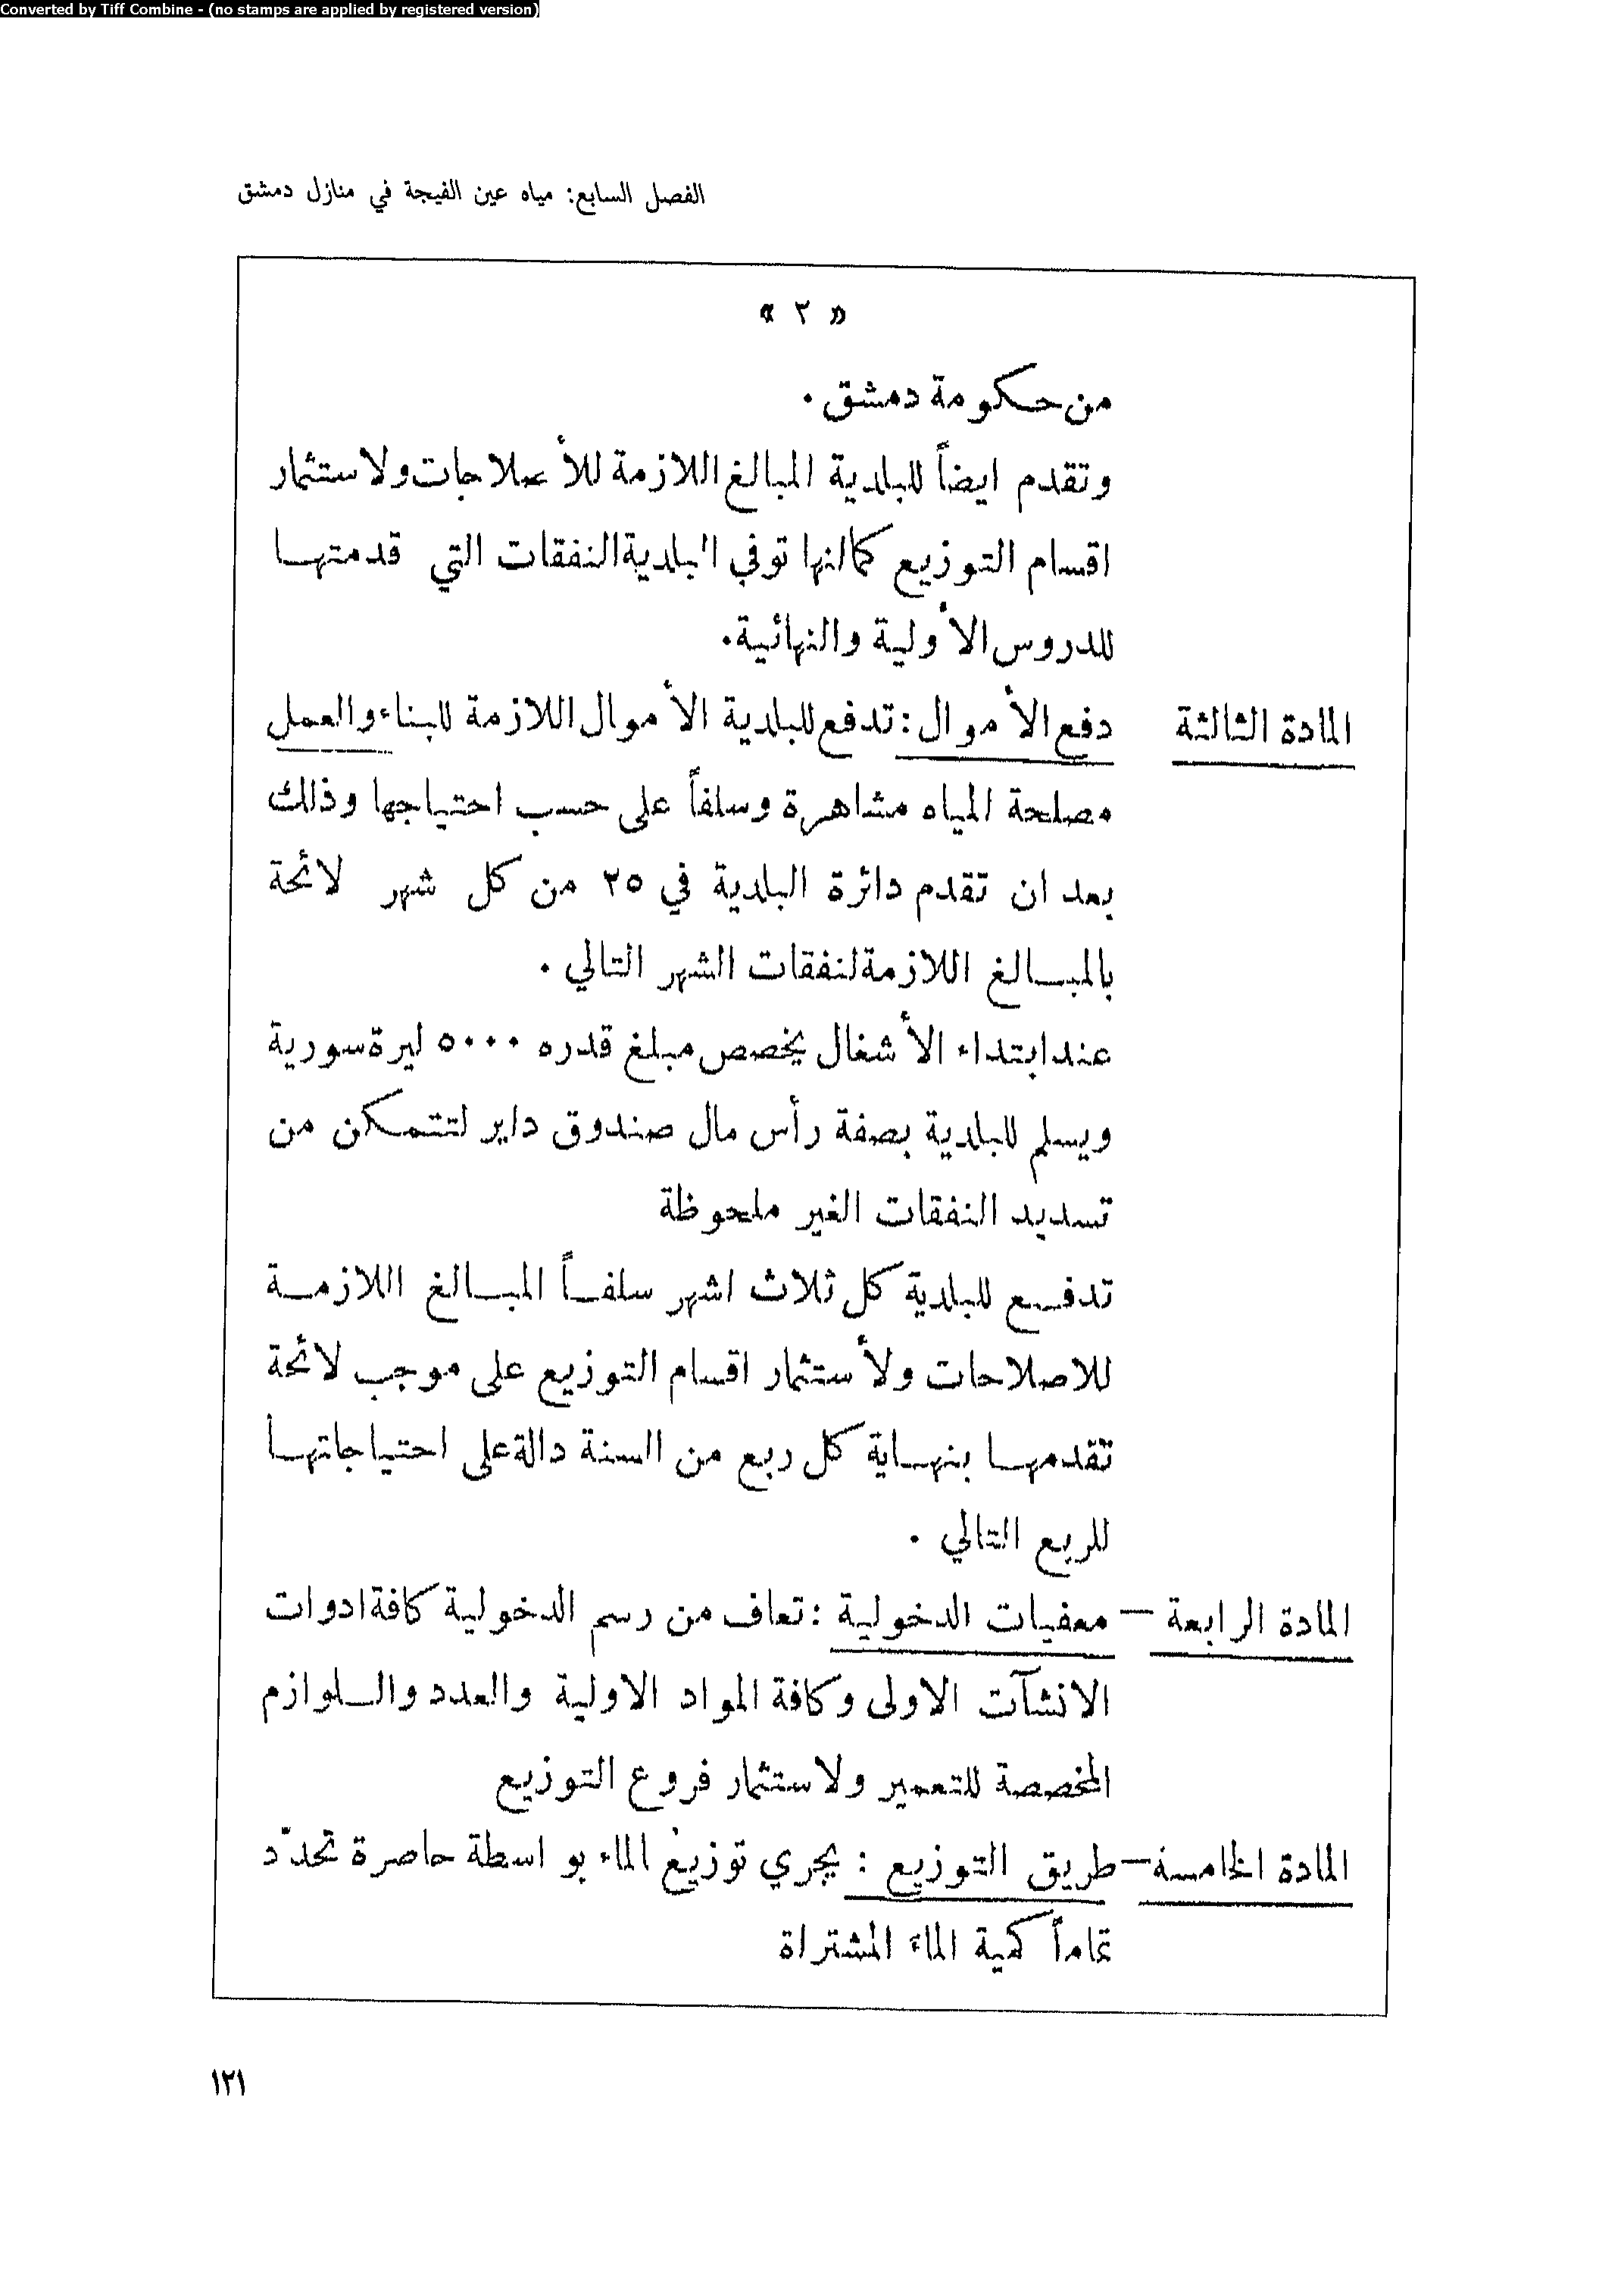 Converted by Tiff Combine - (no stamps are applied by registered version)
الفصل السابع: مياه عين الفيجة في منازل دمشق
« ٢ »
من حكومة دمشق .
وتقدم ايضاً للبلدية المبالغ اللازمة للأصلاحات ولاستثمار
اقسام التوزيع كما انها توفي البلدية النفقات التي قدمتها
للدروس الأولية والنهائية .
المادة الثالثة دفع الأموال : تدفع للبلدية الأموال اللازمة للبناء والعمل
مصلحة المياه مشاهرة وسلفاً على حسب احتياجها وذلك
بعد ان تقدم دائرة البلدية في ٢٥ من كل شهر لائحة
بالمبالغ اللازمة لنفقات الشهر التالي .
عند ابتداء الأشغال يخصص مبلغ قدره ٥٠٠٠ ليرة سورية
ويسلم للبلدية بصفة رأس مال صندوق داير لتتمكن من
تسديد النفقات الغير ملحوظة
تدفع للبلدية كل ثلاث اشهر سلفاً المبالغ اللازمة
للاصلاحات ولأستثمار اقسام التوزيع على موجب لائحة
تقدمها بنهاية كل ربع من السنة دالة على احتياجاتها
للربع التالي .
المادة الرابعة — معفيات الدخولية : تعاف من رسم الدخولية كافة ادوات
الانشآت الاولى وكافة المواد الاولية والعدد والسلوازم
المخصصة للتعمير ولاستثمار فروع التوزيع
المادة الخامسة — طريق التوزيع : يجري توزيع الماء بواسطة حاصرة تحدّد
تماماً كمية الماء المشتراة
١٢١